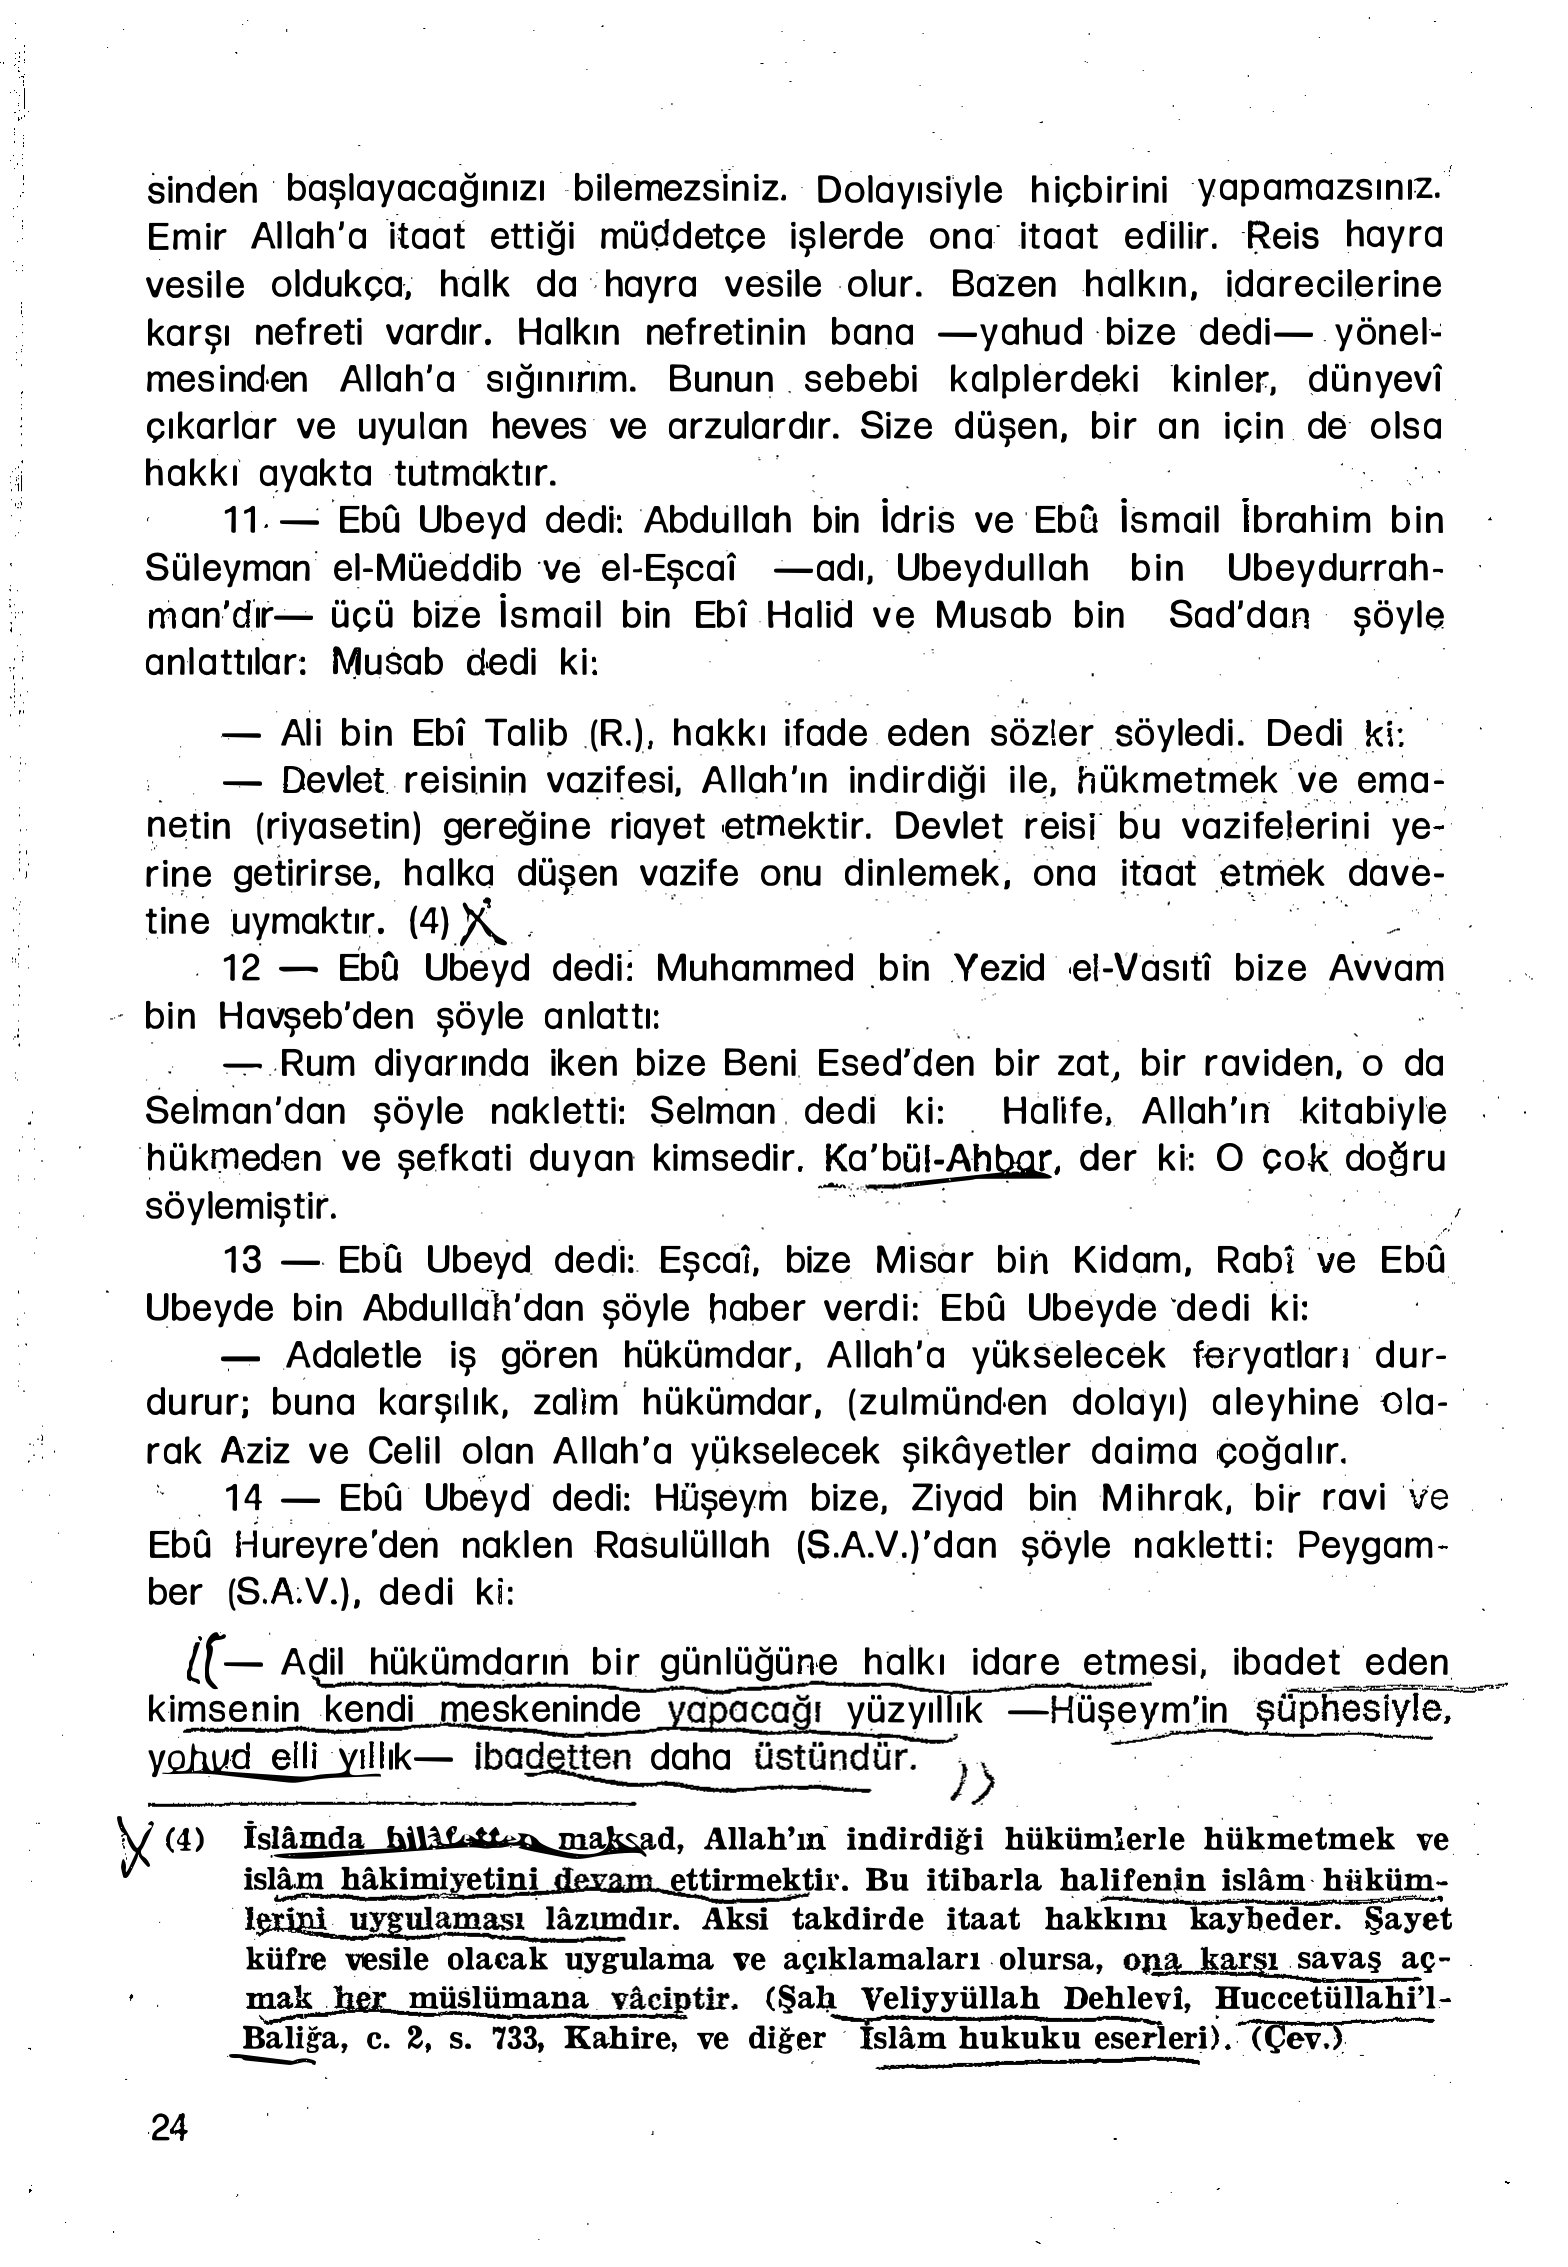 sinden başlayacağınızı bilemezsiniz. Dolayısiyle hiçbirini yapamazsınız.
Emir Allah'a itaat ettiği müddetçe işlerde ona itaat edilir. Reis hayra
vesile oldukça, halk da hayra vesile olur. Bazen halkın, idarecilerine
karşı nefreti vardır. Halkın nefretinin bana —yahud bize dedi— yönel-
mesinden Allah'a sığınırım. Bunun sebebi kalplerdeki kinler, dünyevî
çıkarlar ve uyulan heves ve arzulardır. Size düşen, bir an için de olsa
hakkı ayakta tutmaktır.
11 — Ebû Ubeyd dedi: Abdullah bin İdris ve Ebû İsmail İbrahim bin
Süleyman el-Müeddib ve el-Eşcaî —adı, Ubeydullah bin Ubeydurrah-
man'dır— üçü bize İsmail bin Ebî Halid ve Musab bin Sad'dan şöyle
anlattılar: Musab dedi ki:
— Ali bin Ebî Talib (R.), hakkı ifade eden sözler söyledi. Dedi ki:
— Devlet reisinin vazifesi, Allah'ın indirdiği ile, hükmetmek ve ema-
netin (riyasetin) gereğine riayet etmektir. Devlet reisi bu vazifelerini ye-
rine getirirse, halka düşen vazife onu dinlemek, ona itaat etmek dave-
tine uymaktır. (4)
12 — Ebû Ubeyd dedi: Muhammed bin Yezid el-Vasıtî bize Avvam
bin Havşeb'den şöyle anlattı:
— Rum diyarında iken bize Beni Esed'den bir zat, bir raviden, o da
Selman'dan şöyle nakletti: Selman dedi ki: Halife, Allah'ın kitabiyle
hükmeden ve şefkati duyan kimsedir. Ka'bül-Ahbar, der ki: O çok doğru
söylemiştir.
13 — Ebû Ubeyd dedi: Eşcaî, bize Misar bin Kidam, Rabî ve Ebû
Ubeyde bin Abdullah'dan şöyle haber verdi: Ebû Ubeyde dedi ki:
— Adaletle iş gören hükümdar, Allah'a yükselecek feryatları dur-
durur; buna karşılık, zalim hükümdar, (zulmünden dolayı) aleyhine ola-
rak Aziz ve Celil olan Allah'a yükselecek şikâyetler daima çoğalır.
14 — Ebû Ubeyd dedi: Hüşeym bize, Ziyad bin Mihrak, bir ravi ve
Ebû Hureyre'den naklen Rasulüllah (S.A.V.)'dan şöyle nakletti: Peygam-
ber (S.A.V.), dedi ki:
— Adil hükümdarın bir günlüğüne halkı idare etmesi, ibadet eden
kimsenin kendi meskeninde yapacağı yüzyıllık —Hüşeym'in şüphesiyle,
yahud elli yıllık— ibadetten daha üstündür.
(4) İslâmda hilâfetten maksad, Allah'ın indirdiği hükümlerle hükmetmek ve
islâm hâkimiyetini devam ettirmektir. Bu itibarla halifenin islâm hüküm-
lerini uygulaması lâzımdır. Aksi takdirde itaat hakkını kaybeder. Şayet
küfre vesile olacak uygulama ve açıklamaları olursa, ona karşı savaş aç-
mak her müslümana vâciptir. (Şah Veliyyüllah Dehlevî, Huccetüllahi'l-
Baliğa, c. 2, s. 733, Kahire, ve diğer İslâm hukuku eserleri). (Çev.)
24